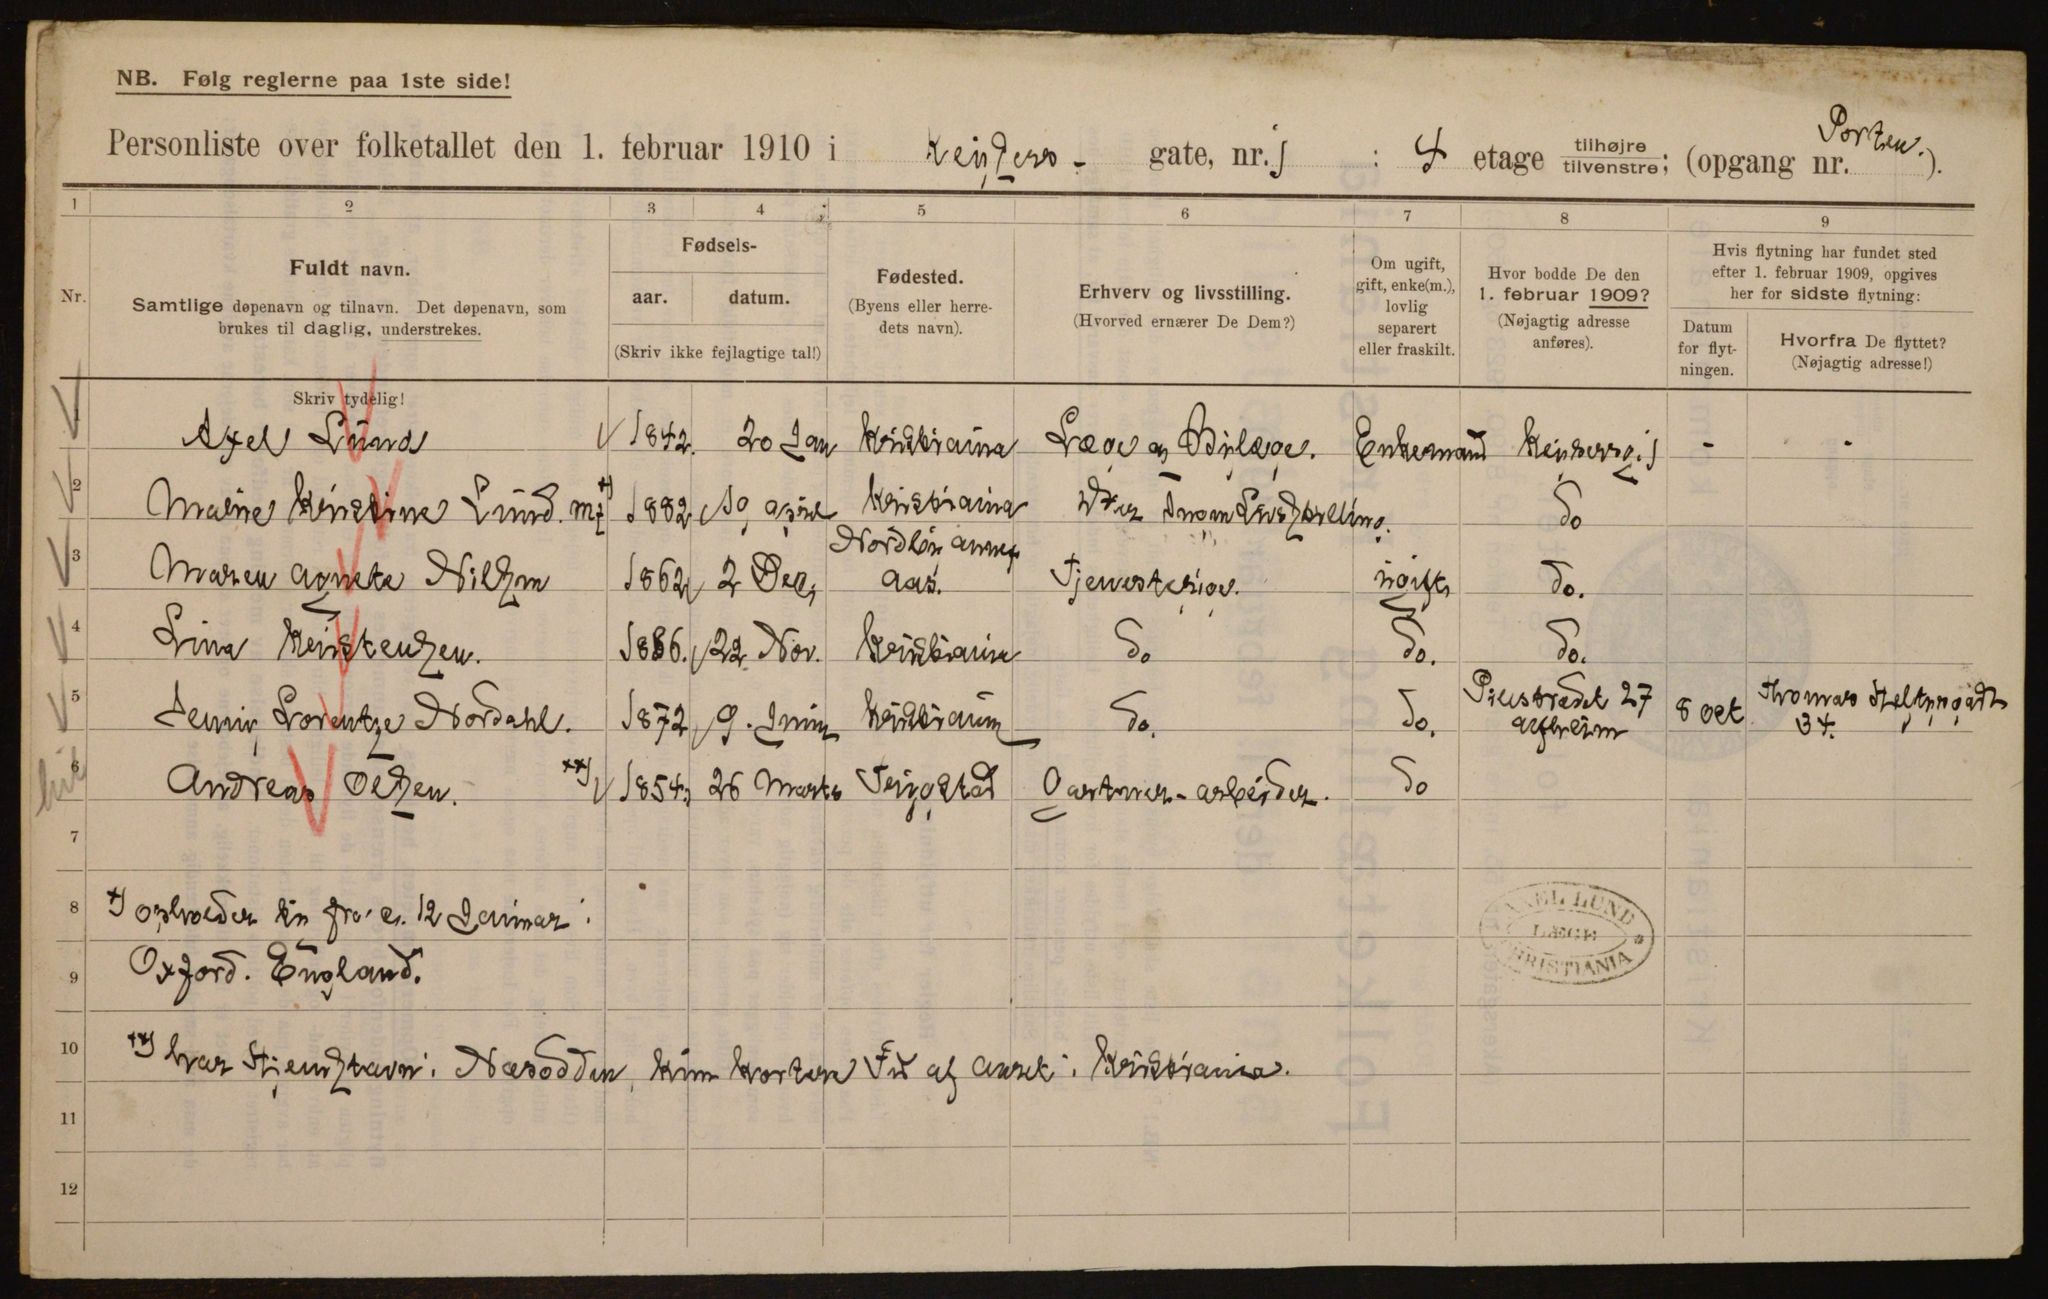 NB. Følg reglerne paa 1ste side!
Personliste over folketallet den 1. februar 1910 i Keysers- gate, nr. 1 : 4 etage tilhøjre tilvenstre; (opgang nr. Porten.).
1 2 3 4 5 6 7 8 9
Nr.
Fuldt navn.
Samtlige døpenavn og tilnavn. Det døpenavn, som
brukes til daglig, understrekes.
Skriv tydelig!
Fødsels-
aar. datum.
(Skriv ikke fejlagtige tal!)
Fødested.
(Byens eller herre-
dets navn).
Erhverv og livsstilling.
(Hvorved ernærer De Dem?)
Om ugift,
gift, enke(m.),
lovlig
separert
eller fraskilt.
Hvor bodde De den
1. februar 1909?
(Nøjagtig adresse
anføres).
Hvis flytning har fundet sted
efter 1. februar 1909, opgives
her for sidste flytning:
Datum
for flyt-
ningen.
Hvorfra De flyttet?
(Nøjagtig adresse!)
1 Axel Lund 1842. 20 Jan Kristiania Læge Enkemand Keysersg. 1 - -
2 Kristine Lund. x) 1882 19 april Kristiania do
3 Maren Agnete 1862 2 Dec, Aas. Tjenestepige. ugift, do.
4 Lina Kristensen. 1886. 22 Nov. Kristiania do do. do.
5 Jenny Lorentze Nordahl. 1872 9. Juni Kristiania do. do. Pilestrædet 27 8 oct Thomas Heftyesgade
34.
6 Andreas Olsen. xx) 1854. 26 Marts Gartner-arbeider. do
7
8 x) opholder 12 Januar i
9 Oxford. England.
10 xx) har i Næsodden, kun kortere Tid af aaret i Kristiania.
11
12
AXEL LUND
LÆGE
KRISTIANIA